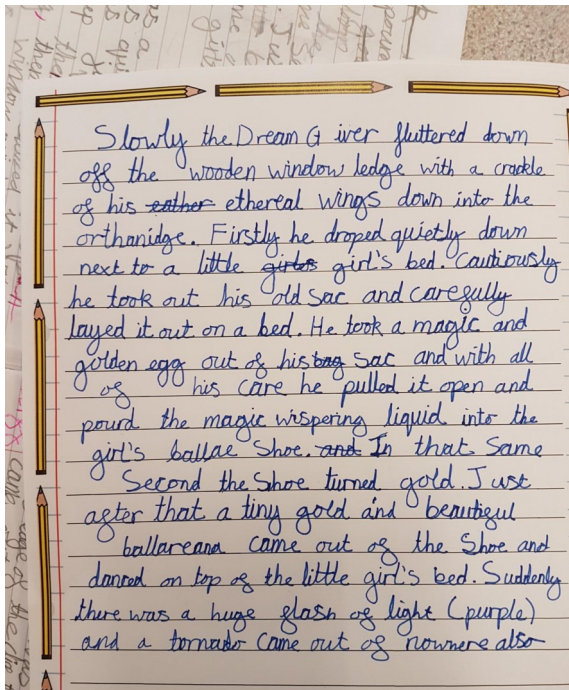 Slowly the Dream Giver fluttered down
off the wooden window ledge with a crackle
of his eather ethereal wings down into the
orthanidge. Firstly he droped quietly down
next to a little girles girl's bed. Cautiously
he took out his old sac and carefully
layed it out on a bed. He took a magic and
golden egg out of his bag sac and with all
of his care he pulled it open and
pourd the magic wispering liquid into the
girl's ballae Shoe. and In that Same
Second the Shoe turned gold. Just
after that a tiny gold and beautiful
ballareana came out of the Shoe and
danced on top of the little girl's bed. Suddenly
there was a huge flash of light (purple)
and a tornado came out of nowhere also